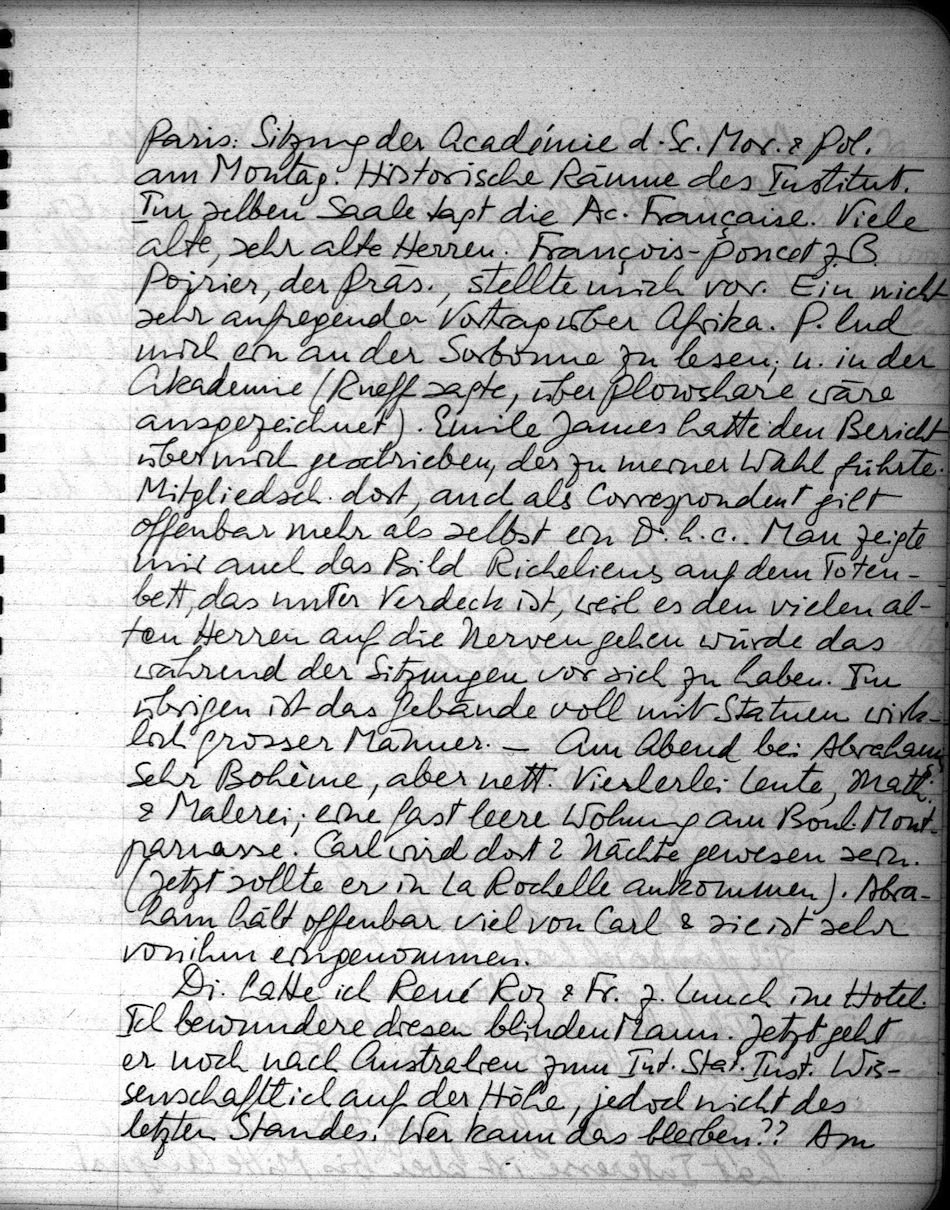 Paris: Sitzung der Académie d. Sc. Mor. & Pol.
am Montag. Historische Räume des Institut.
Im selben Saale tagt die Ac. Française. Viele
alte, sehr alte Herren. François-Poncet z.B.
Poirier, der Präs., stellte mich vor. Ein nicht
sehr aufregender Vortrag über Afrika. P. lud
mich ein an der Sorbonne zu lesen; u. in der
Akademie (Rueff sagte, über Plowshare wäre
ausgezeichnet). Emile James hatte den Bericht
über mich geschrieben, der zu meiner Wahl führte.
Mitgliedsch. dort, auch als Correspondent gilt
offenbar mehr als selbst ein D.h.c.. Man zeigte
mir auch das Bild Richelieus auf dem Toten-
bett, das unter Verdeck ist, weil es den vielen al-
ten Herren auf die Nerven gehen würde das
während der Sitzungen vor sich zu haben. Im
übrigen ist das Gebäude voll mit Statuen wirk-
lich grosser Männer. — Am Abend bei Abraham,
sehr Bohème, aber nett. Vielerlei Leute, Math.
& Malerei; eine fast leere Wohnung am Boul. Mont-
parnasse. Carl wird dort 2 Nächte gewesen sein.
(Jetzt sollte er in La Rochelle ankommen). Abra-
ham hält offenbar viel von Carl & sie ist sehr
von ihm eingenommen.
Di. hatte ich René Roy & Fr. z. Lunch ine Hotel.
Ich bewundere diesen blinden Mann. Jetzt geht
er noch nach Australien zum Int. Stat. Inst. Wis-
senschaftlich auf der Höhe, jedoch nicht des
letzten Standes. Wer kann das bleiben?? Am